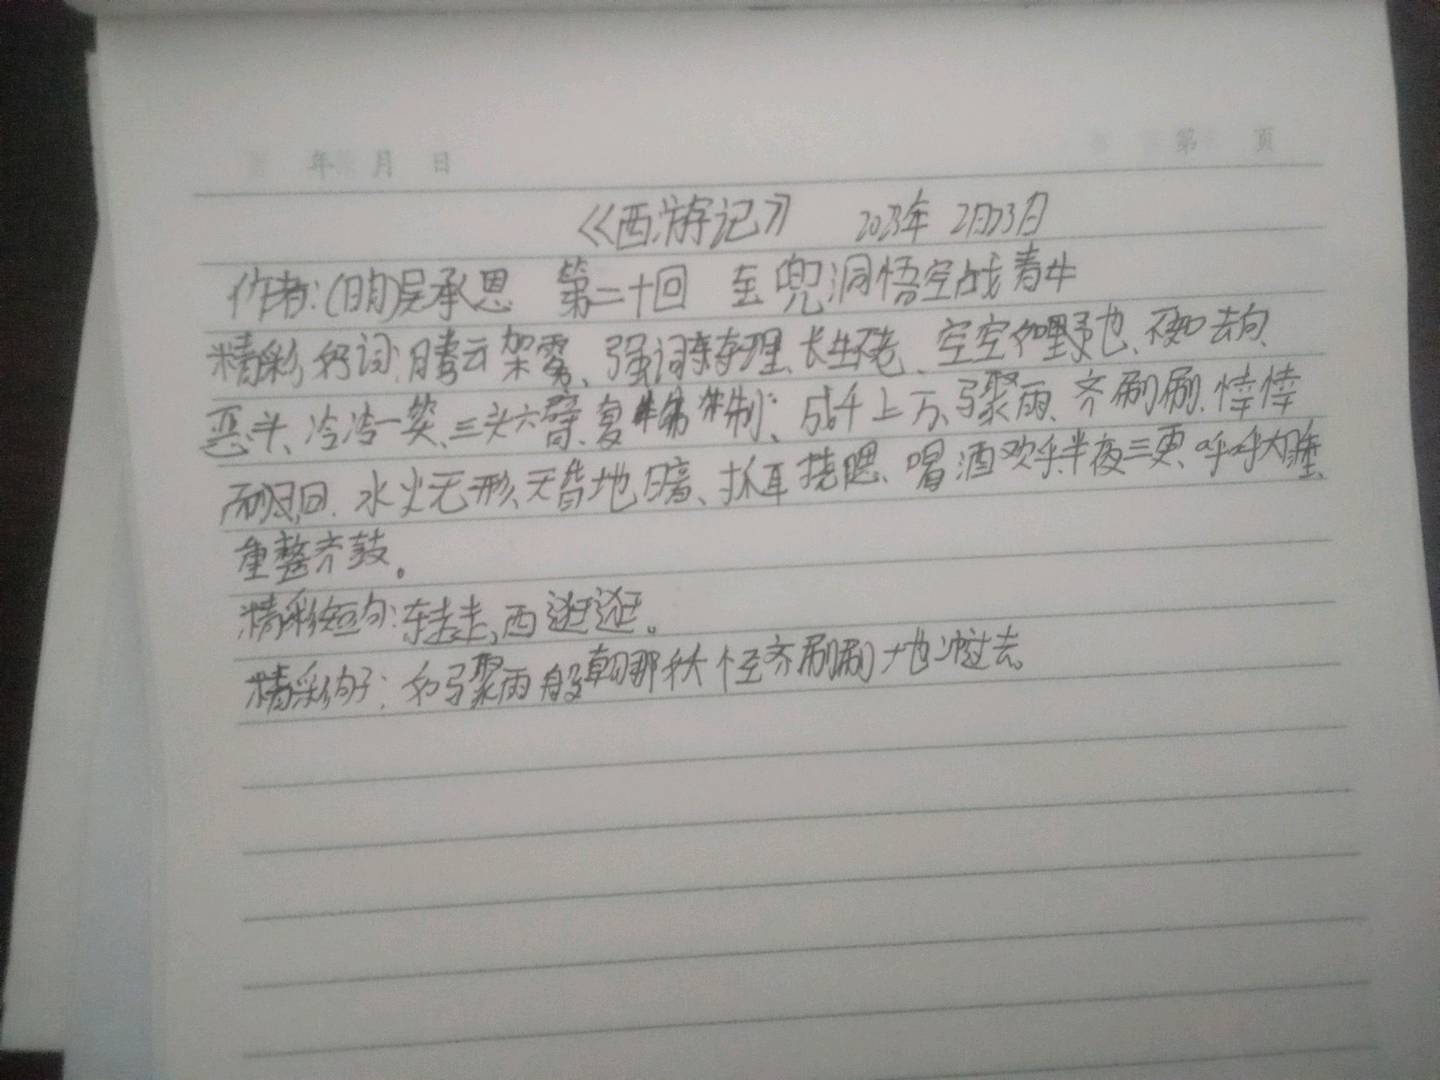 年 月 日 第 页
《西游记》 2023年 2月23日
作者:(明)吴承恩 第二十回 金兜洞悟空战青牛
精彩好词:腾云架雾、强词夺理、长生不老、空空如野也、不知去向、
恶斗、冷冷一笑、三头六臂、复制、成千上万、骤雨、齐刷刷、悻悻
而回、水火无形、天昏地暗、抓耳挠腮、喝酒欢乎、半夜三更、呼呼大睡、
重整齐鼓。
精彩短句:东走走,西逛逛。
精彩句子:如骤雨般朝那妖怪齐刷刷地冲过去。